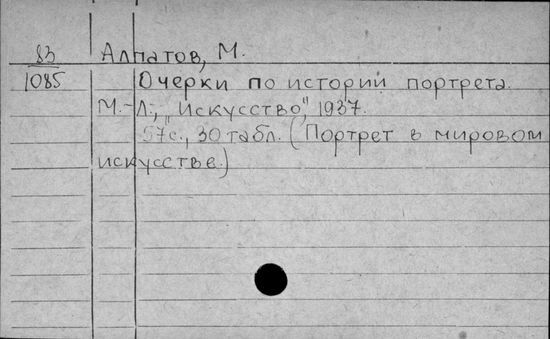 83 Алпатов, М.
1085 Очерки по истории портрета.
М.-Л., „Искусство", 1937.
57с., 30 табл. (Портрет в мировом
искусстве.)